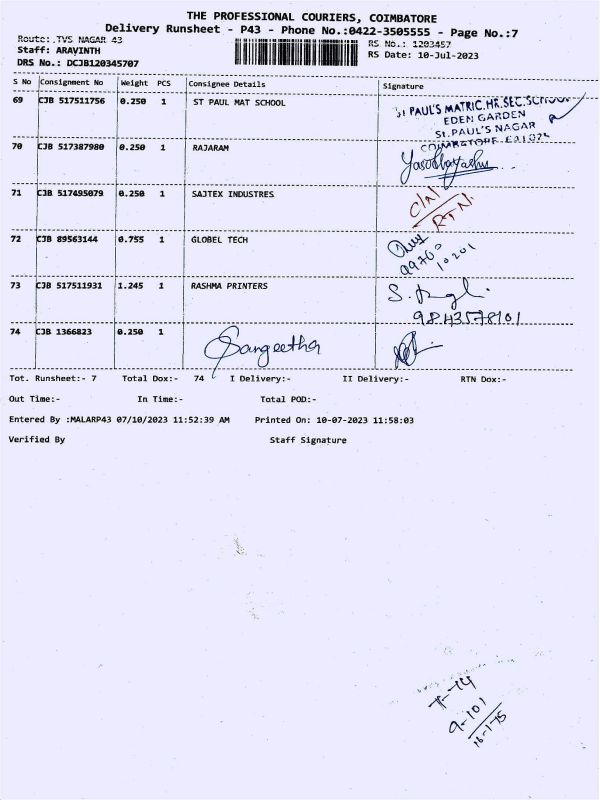 THE PROFESSIONAL COURIERS, COIMBATORE
Delivery Runsheet - P43 - Phone No.:0422-3505555 - Page No.:7
Route: .TVS NAGAR 43 RS No.: 1203457
Staff: ARAVINTH RS Date: 10-Jul-2023
DRS No.: DCJB120345707
S No Consignment No Weight PCS Consignee Details Signature
69 CJB 517511756 0.250 1 ST PAUL MAT SCHOOL
St PAUL'S MATRIC.HR.SEC.SCHOOL
EDEN GARDEN
St.PAUL'S NAGAR
COIMBATORE
70 CJB 517387980 0.250 1 RAJARAM
71 CJB 517495079 0.250 1 SAJTEX INDUSTRES
C/N/
RTN.
72 CJB 89563144 0.755 1 GLOBEL TECH
99760
10201
73 CJB 517511931 1.245 1 RASHMA PRINTERS
9843578101
74 CJB 1366823 0.250 1 Sangeetha
Tot. Runsheet:- 7 Total Dox:- 74 I Delivery:- II Delivery:- RTN Dox:-
Out Time:- In Time:- Total POD:-
Entered By :MALARP43 07/10/2023 11:52:39 AM Printed On: 10-07-2023 11:58:03
Verified By Staff Signature
T-74
9-101
16-1-75